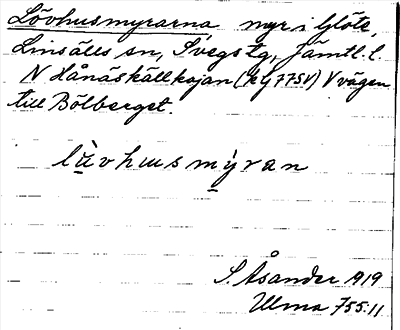 Lövhusmyrarna myr i Glöte,
Linsälls sn, Svegs tg, Jämtl. l.
N Hånåskällkojan (kg 775V) V vägen
till Bölberget.
lùvhusmỳran
S. Åsander 1919
Ulma 755:11